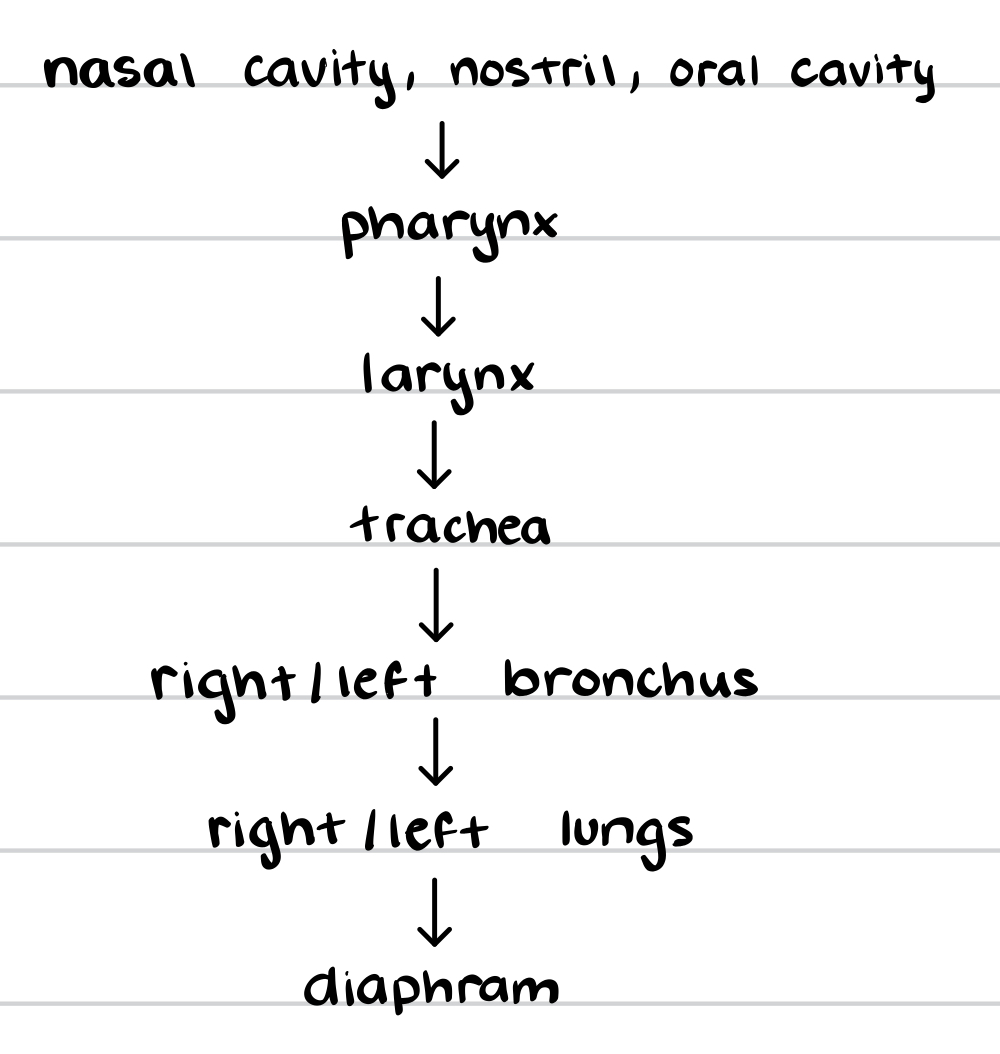 nasal cavity, nostril, oral cavity
↓
pharynx
↓
larynx
↓
trachea
↓
right/left bronchus
↓
right/left lungs
↓
diaphram